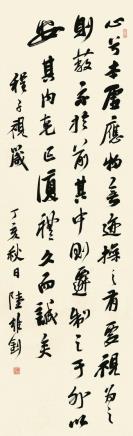 心兮本虛應物無迹操之有要視為之
則蔽交於前其中則遷制之于外以
安其内克己復禮久而誠矣
程子視箴
丁亥秋日 陸維釗